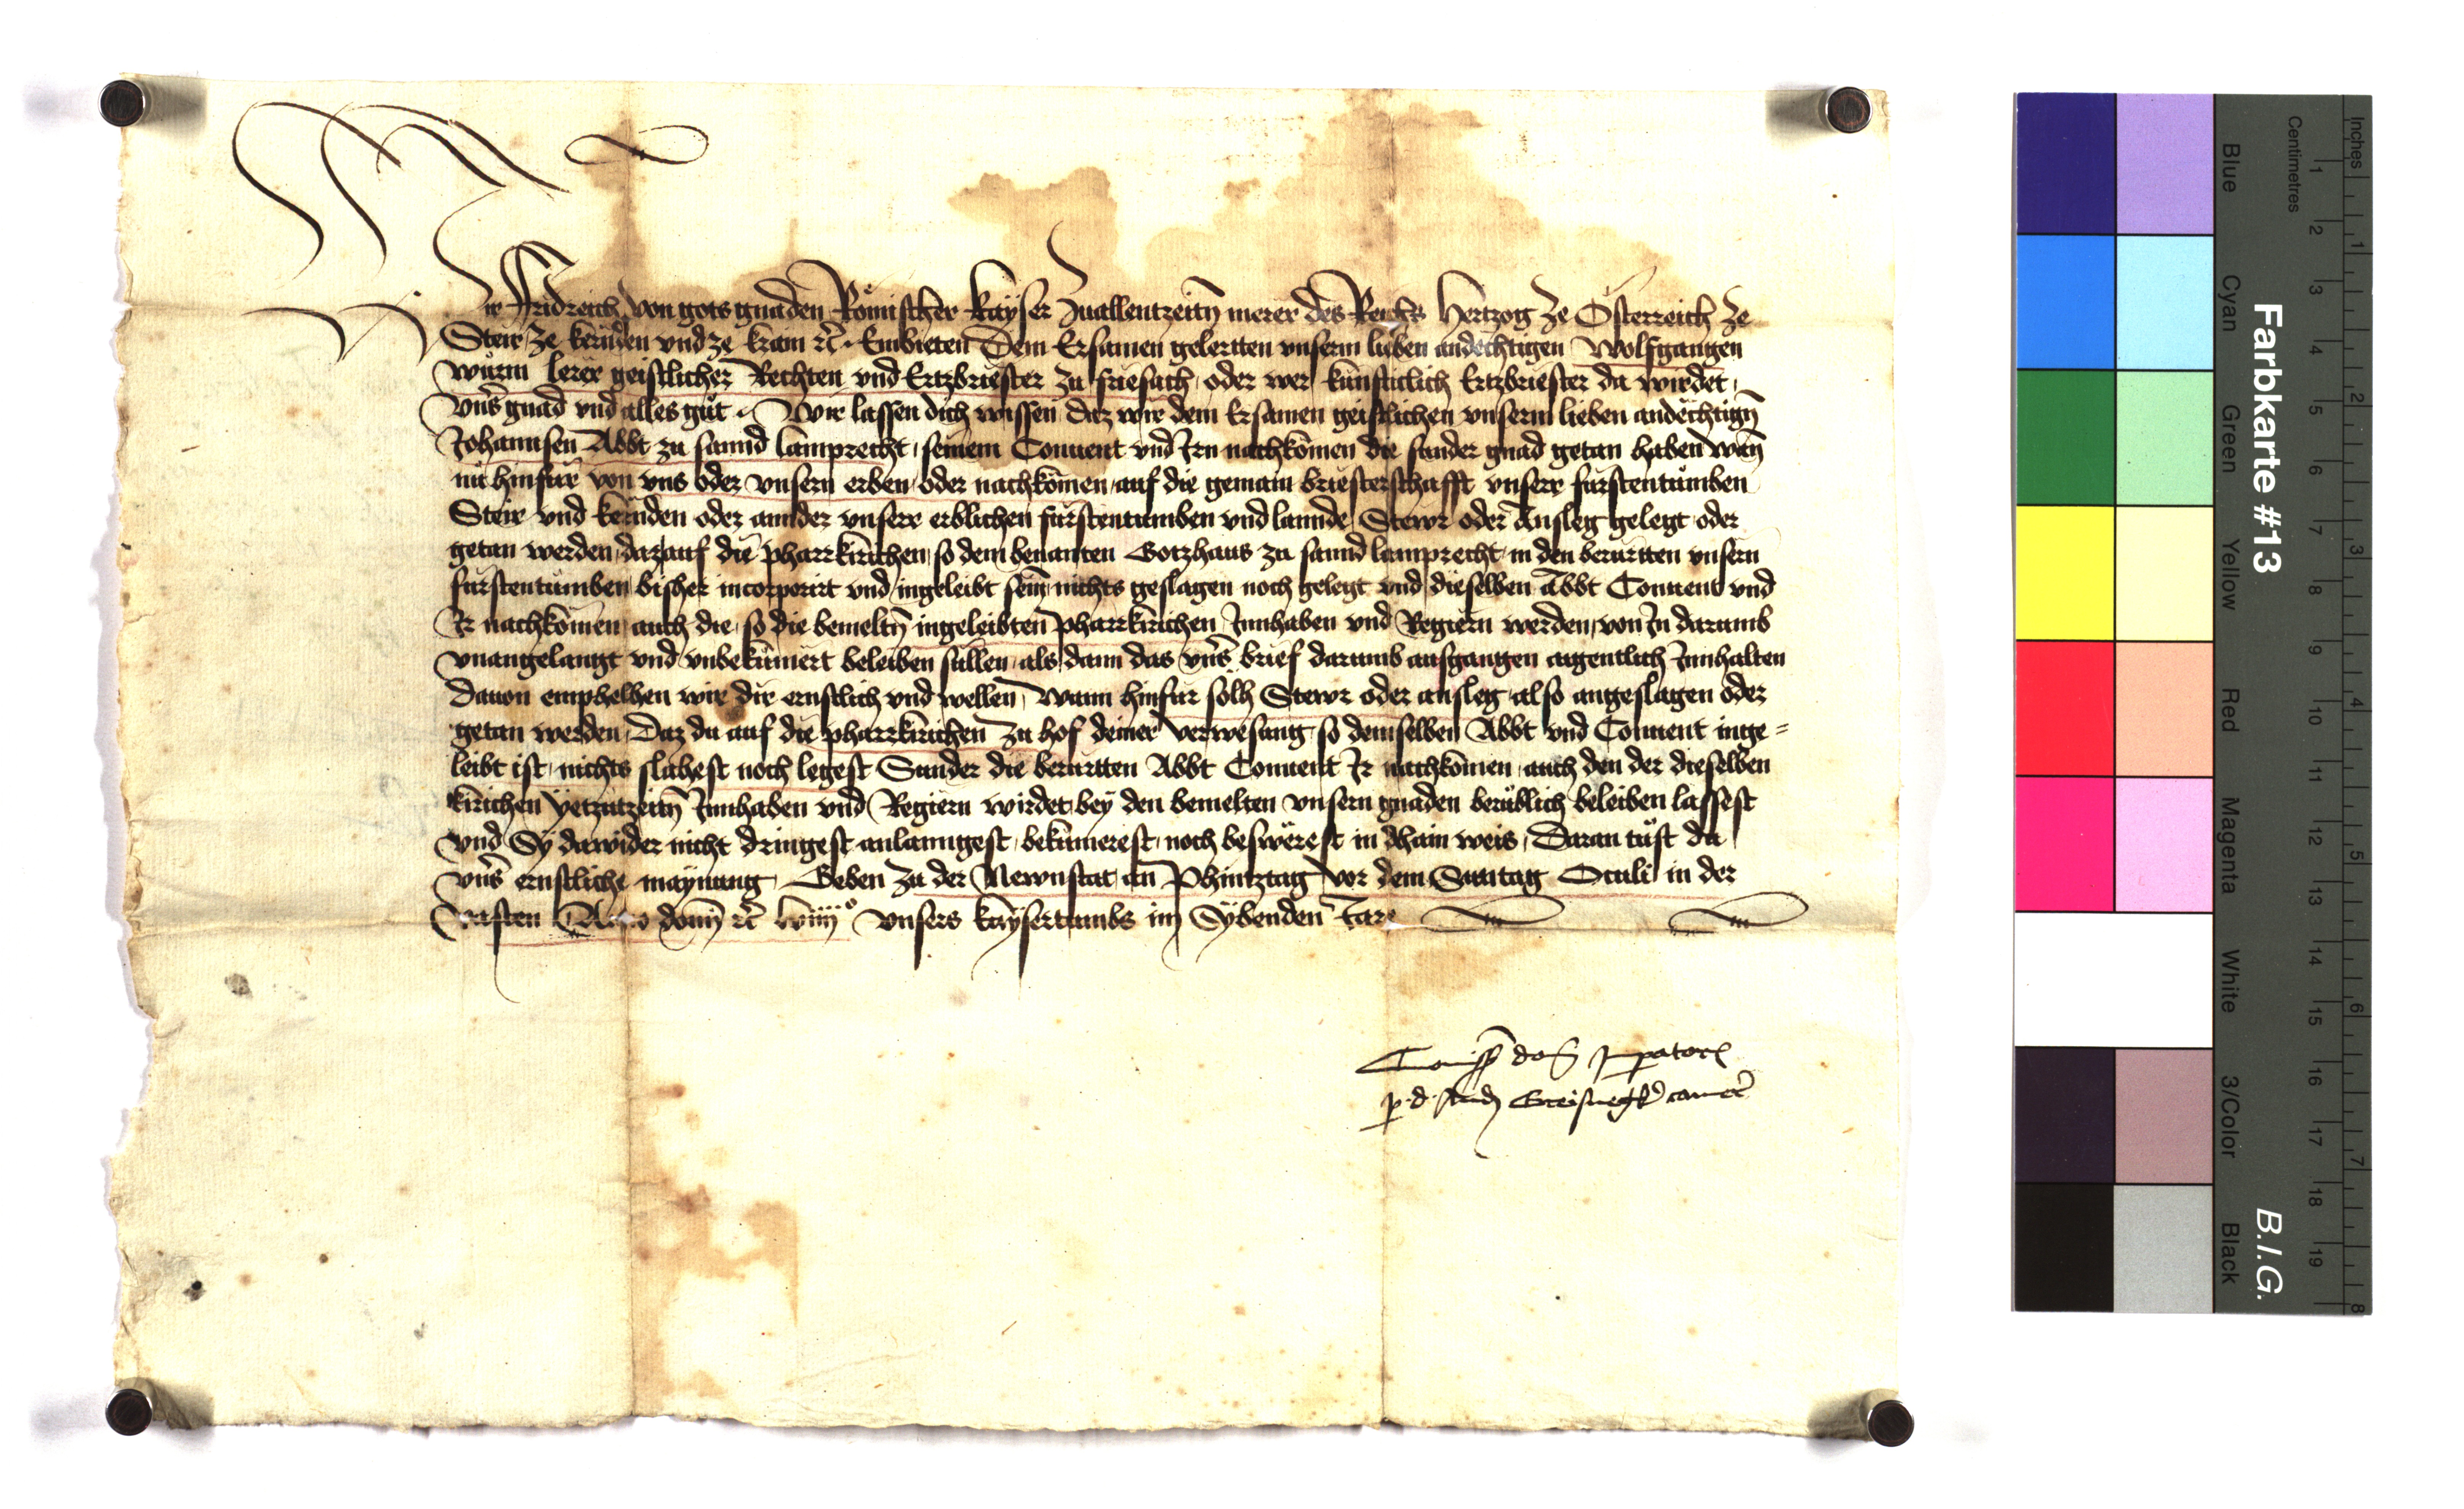 Wir Fridreich von gots gnaden Römischer Kayser zuallentzeitn merer des Reichs Hertzog ze Österreich ze
Steir ze kernden vnd ze krain etc. Embieten Dem Ersamen gelertten vnserm lieben andechtigen Wolfgangen
würm lerer geistlicher Rechten vnd Ertzbriester zu friesach oder wer künfticlich Ertzbriester da wirdet,
vnns gnad vnd alles gůt. Wir lassen dich wissen daz wir dem Ersamen geistlichen vnserm lieben andechtign
Johannsen Abbt zu sannd lamprecht, seinem Conuent vnd Irn nachkomen die sunder gnad getan haben wan
nu hinfür von vns oder vnsern erben oder nachkömen auf die gemain briesterschafft vnserr fürstentumben
Steir vnd kernden oder annder vnserr erblichen fürstentumben vnd lannde, Stewr oder Ansleg gelegt oder
getan werden, daz auf die pharrkirichen, so dem benanten Gotzhaus zu sannd lamprecht in den berurtten vnsern
fürstentumben bisher incorporirt vnd ingeleibt sein nichts geslagen noch gelegt vnd dieselben Abbt Conuent vnd
Ir nachkömen auch die, so die bemeltn ingeleibten pharrkirichen Innhaben vnd Regiern werden, von In darumb
vnangelangt vnd vnbekümert beleiben süllen als dann das vnns brief darumb ausgangen aigentlich Innhalten
Dauon emphelhen wir dir ernstlich vnd wellen, Wann hinfur solh Stewr oder ansleg also angeslagen oder
getan werden, Daz du auf die pharrkirichen zu hof deiner verwesung so demselben Abbt vnd Conuent inge=
leibt ist, nichts slahest noch legest Sunder die berurtten Abbt Conuent Ir nachkömen auch den der dieselben
kirichen yetzuzeitn Innhaben vnd Regiern wirdet bey den bemelten vnsern gnaden berüblich beleiben lassest
vnd Sy dawider nicht dringest anlanngest, bekümerest, noch beswerest in dhain weis, Daran tůst du
vnns ernstliche maynung. Geben zu der Newnstat an Phintztag vor dem Sunntag Oculi in der
vasten Anno domini etc lviiij° vnsers kaysertumbs im Sybenden Jare
Commissio domini Imperatoris
p. d. Andr Greisnegker camer
Farbkarte #13
B.I.G.
Inches 1 2 3 4 5 6 7 8
Centimetres 1 2 3 4 5 6 7 8 9 10 11 12 13 14 15 16 17 18 19
Blue
Cyan
Green
Yellow
Red
Magenta
White
3/Color
Black